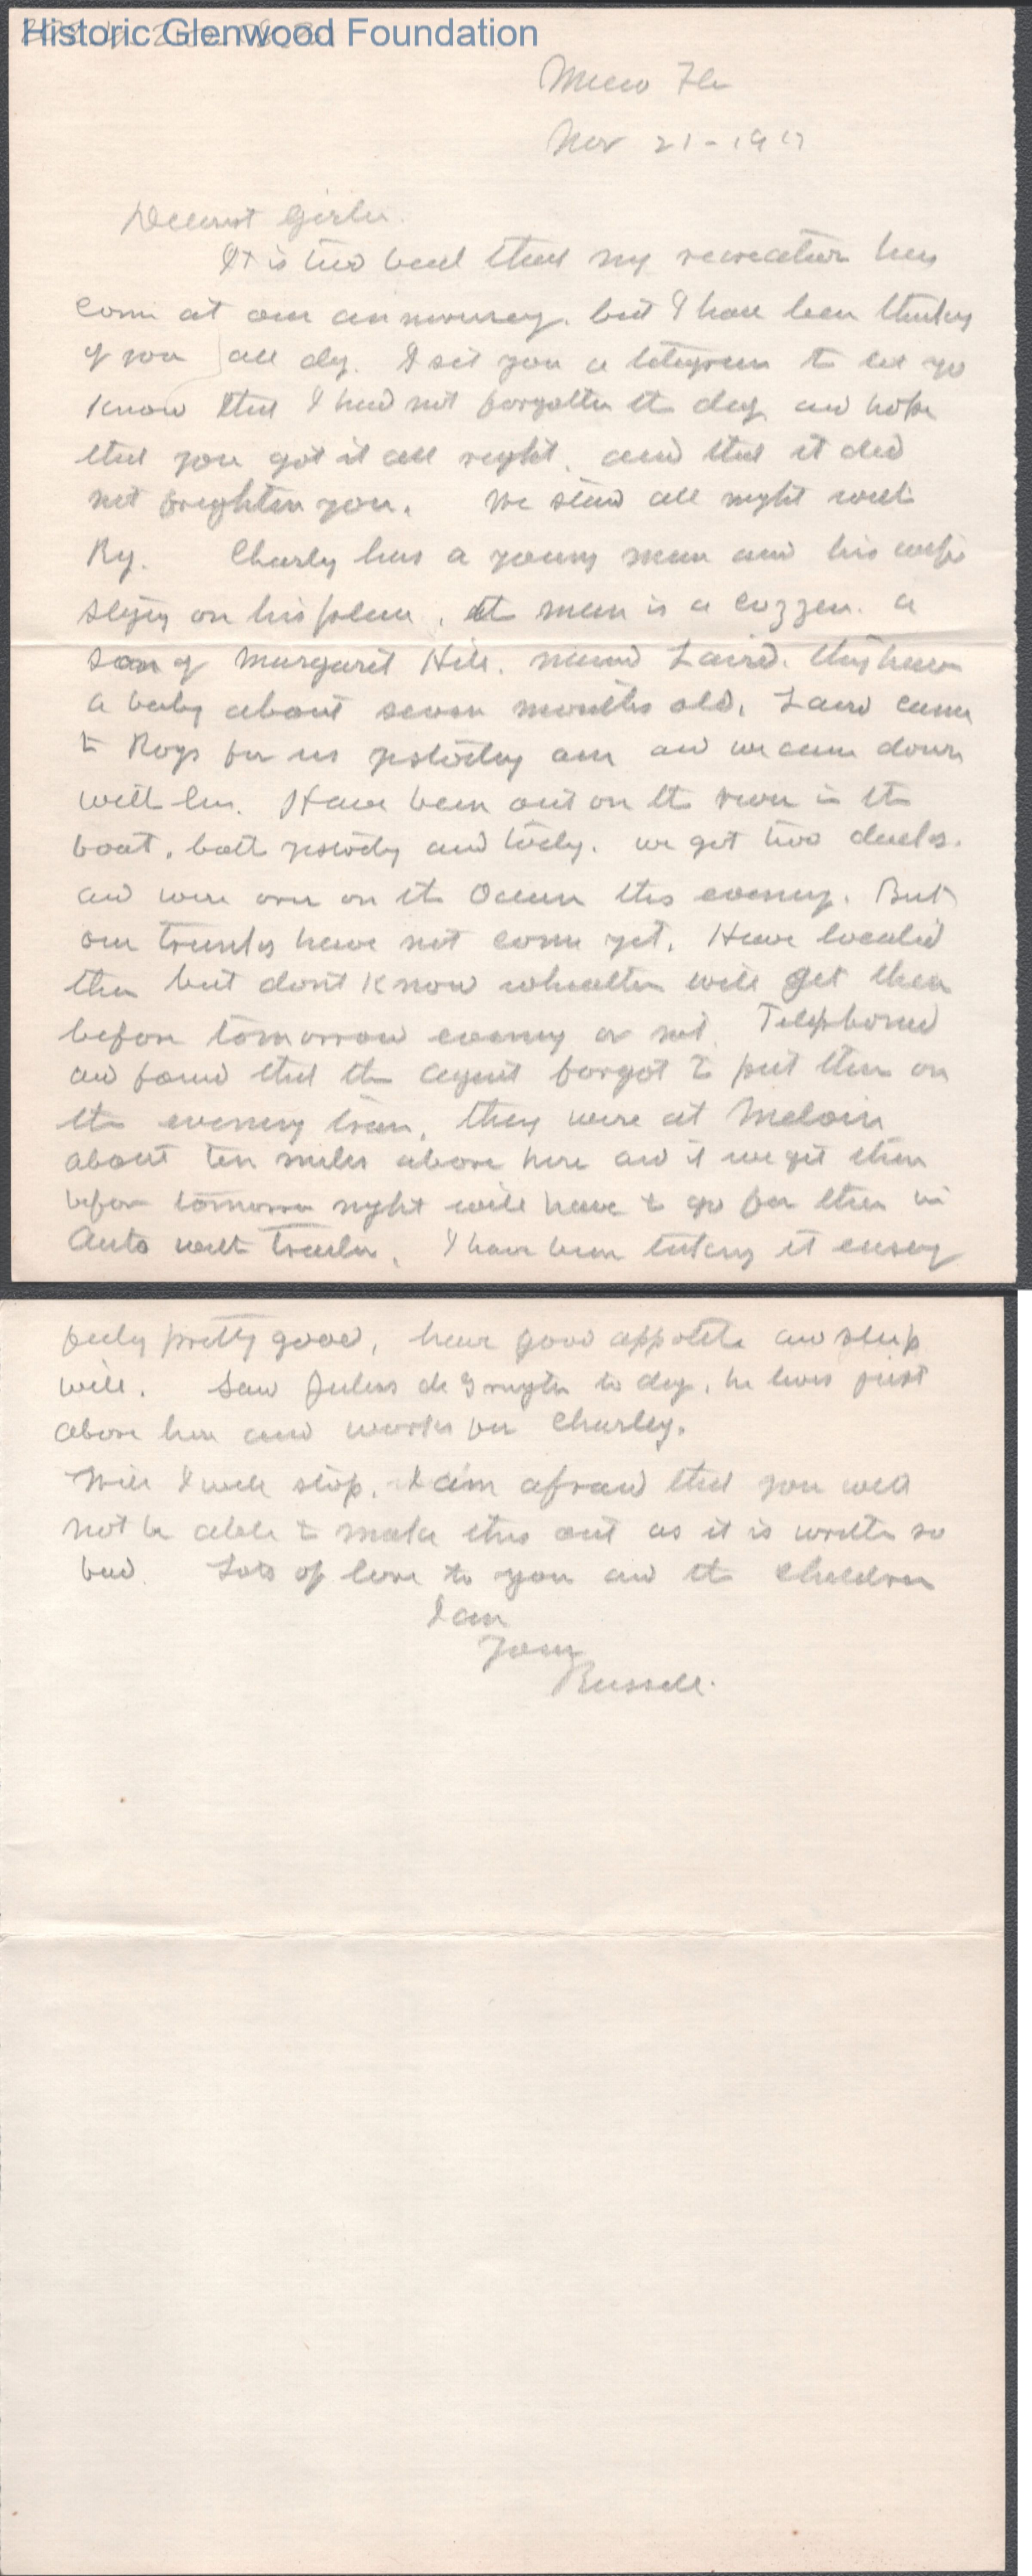 Historic Glenwood Foundation
Micco Fla
Nov 21-1917
Dearest Girlie.
It is two bad that my recreation has
com at our anniversary. but I have been thinking
of you all day. I set you a telegram to let yo
know that I had not forgotten the day and hope
that you got it all right. and that it did
not frighten you. We staid all night with
Ry. Charly has a young man and his wife
staying on his place. the man is a cozzen. a
son of Margaret Hill. named Laird. they have
a baby about seven months old. Laird came
to Roys for us yestoday am and we came down
with him. Have been out on the river in the
boat. both yestody and today. we got two ducks.
and were over on the Ocean this evening. But
our trunks have not come yet. Have located
them but dont know wheather will get them
before tomorrow evening or not. Telephoned
and found that the agent forgot to put them on
the evening train. they were at
about ten miles above here and if we get them
before tomorrow night will have to go for them in
Auto with trailer. I have been taking it easey
feeling pretty good, have good appotite and sleep
well. Saw Julius de Gruyter to day. he lives just
above here and works for Charley.
Well I will stop. I am afraid that you will
not be able to make this out as it is written so
bad. Lots of love to you and the children
I am
Your
Russell.